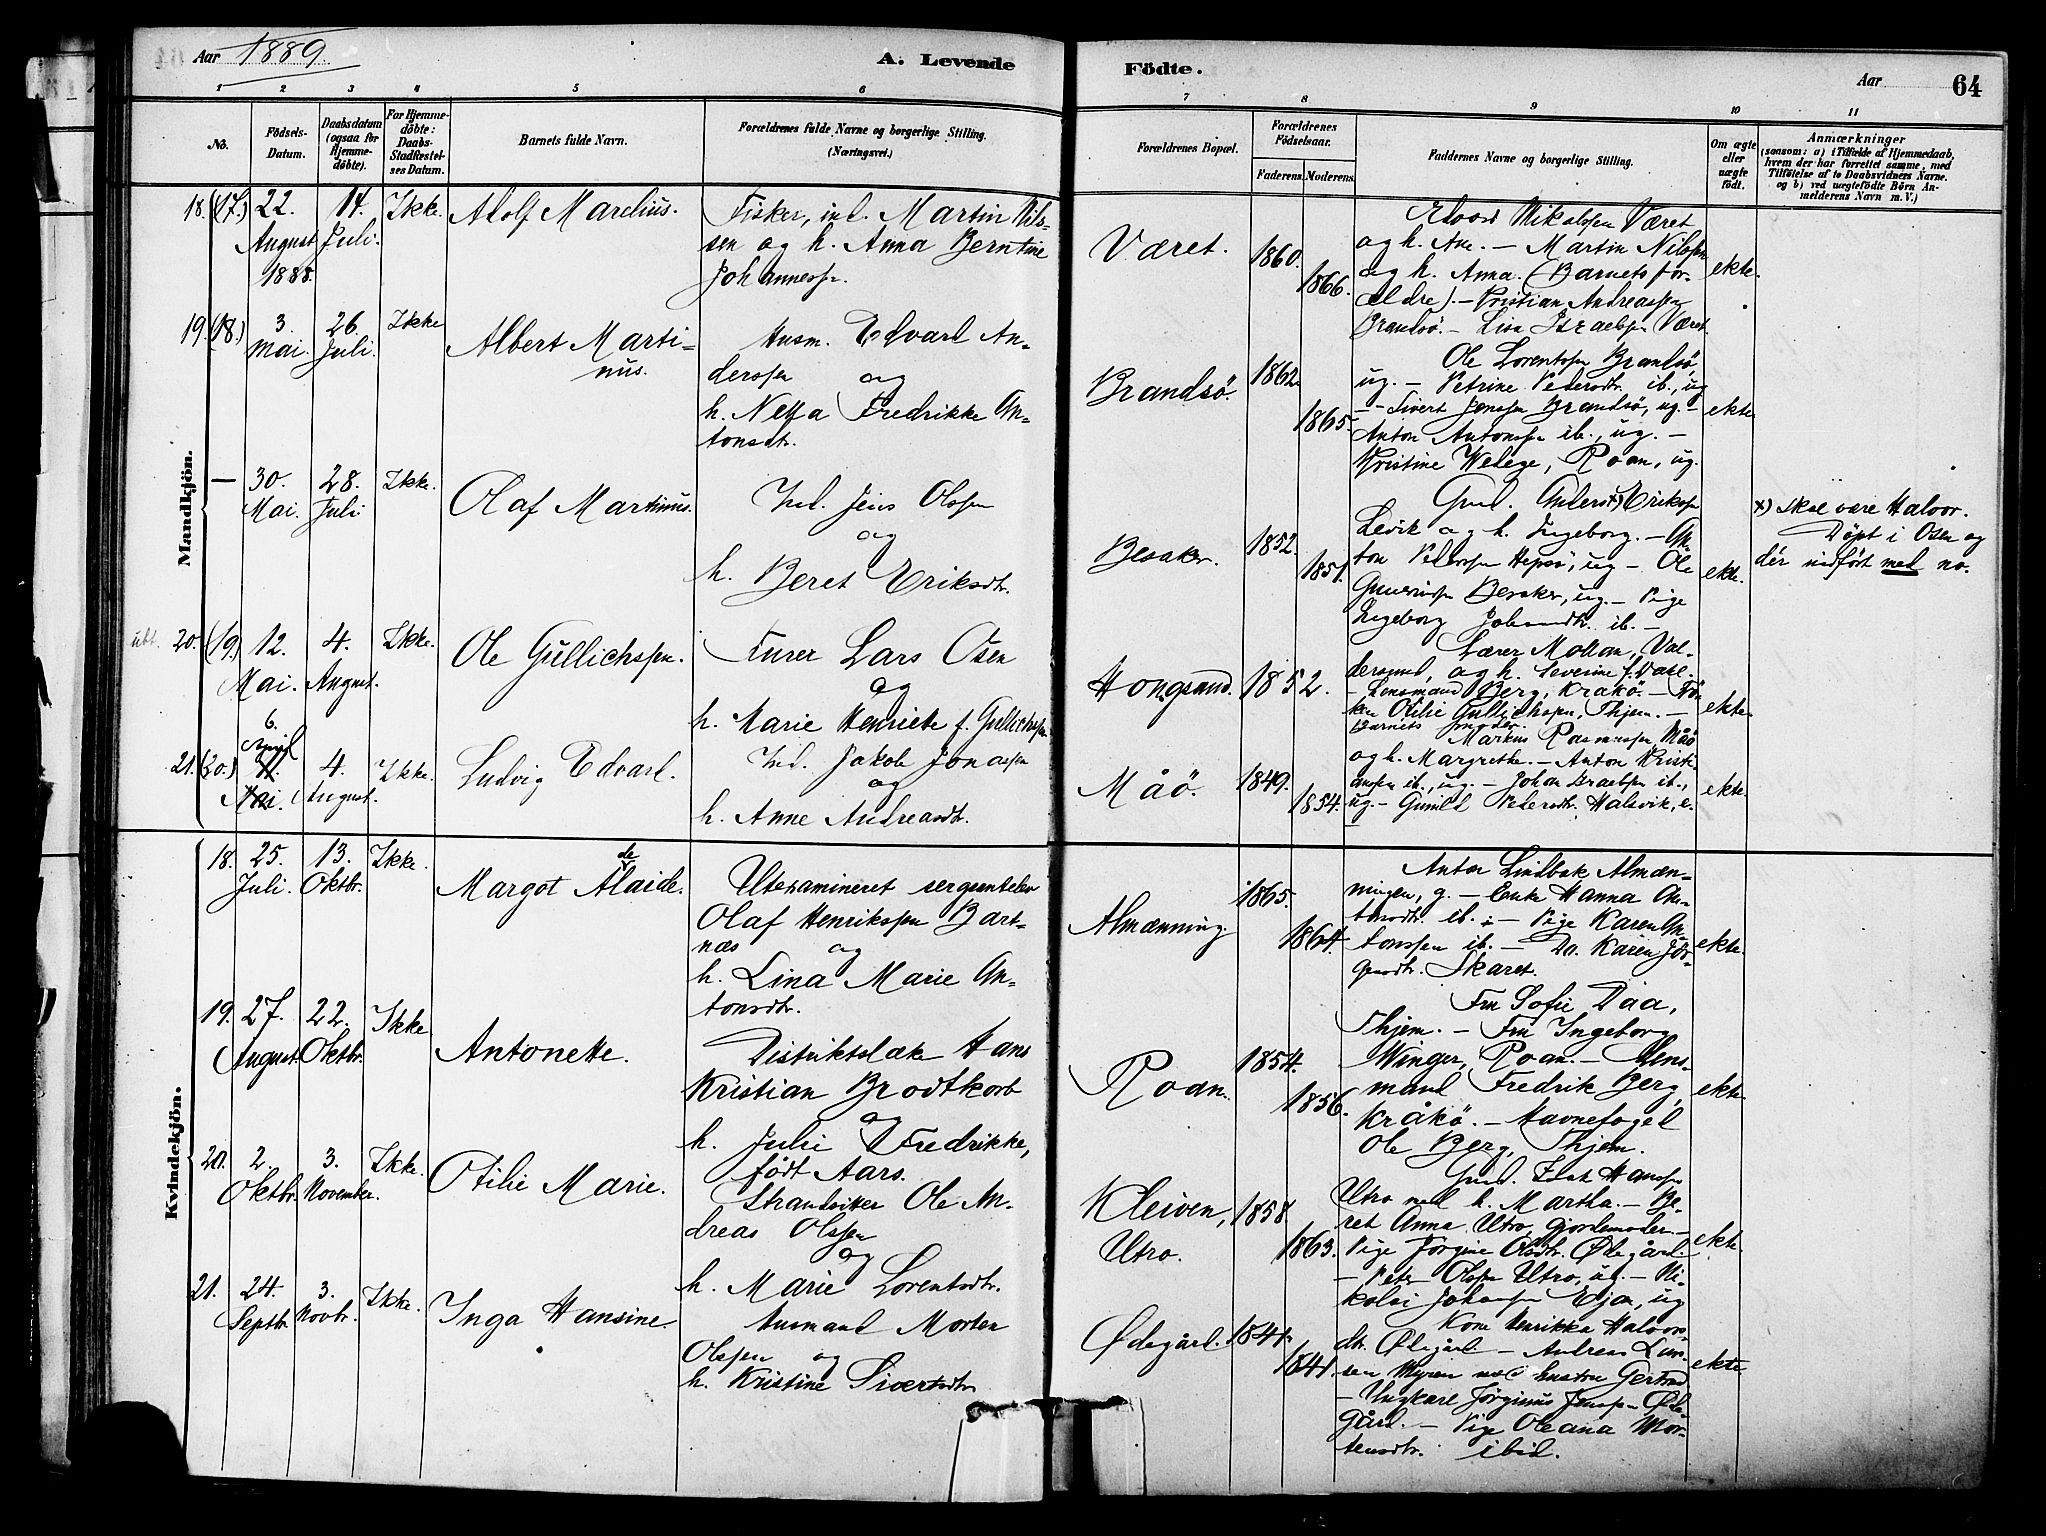 Aar 1889. A. Levende
Födte. Aar 64
1 2 3 4 5 6
7 8 9 10 11
No.
Födsels-
Datum.
Daabsdatum
(ogsaa for
Hjemme-
döbte).
For Hjemme-
döbte:
Daabs-
Stadfæstel-
ses Datum.
Barnets fulde Navn.
Forældrenes fulde Navne og borgerlige Stilling.
(Næringsvei.)
Forældrenes Bopæl.
Forældrenes
Födselsaar.
Faderens. Moderens.
Faddernes Navne og borgerlige Stilling.
Om ægte
eller
uægte
födt.
Anmærkninger
(saasom: a) i Tilfælde af Hjemmedaab,
hvem der har forrettet samme, med
Tilföielse af to Daabsvidners Navne,
og b) ved uægtefödte Börn An-
melderens Navn m. V.)
Mandkjön.
18. (17.) 22.
August
1888.
14.
Juli.
Ikke.
Adolf Marelius.
Fisker, ind. Martin Nils-
sen og h. Anna Berntine
Johannessn.
Været.
1860.
1866.
Edvard Nikolaisen Været
og h. Ane. – Martin Nilssen
og h. Anna. (Barnets for-
ældre). – Kristian Andreassen
Brandsö. – Lisa Israelsen Været
ekte.
19. (18.) 3.
Mai.
26.
Juli.
Ikke
Albert Marti-
nus.
Husm. Edvard An-
derssen og
h. Netta Fredrikke An-
tonsdt.
Brandsö.
1862.
1865.
Ole Lorentsen Brandsö,
ug. – Petrine Pedersdt. ib., ug
– Sivert Jenssen Brandsö, ug. –
Anton Antonssen ib., ug. –
Kristine Wedege, Roan, ug.
ekte
— 30.
Mai.
28.
Juli
Ikke.
Olaf Martinus.
Ind. Jens Olssen
og
h. Beret Eriksdtr.
Bessaker.
1852.
1851.
Gmd. Anders x) Erikssen
Levik og h. Ingeborg. – An-
ton Pederssen Hepsö, ug – Ole
Bessaker, ug. – Pige
Ingeborg ib. –
ekte.
x) skal være Halvor.
Döpt i Osen og
dér indfört med no.
20. (19.) 12.
Mai.
4.
August.
Ikke.
Ole Gullichsen.
Furer Lars Osen
og
h. Marie Henriette f. Gullichsen
Hongsand.
1852.
Lærer Moltau, Val-
dersund, og h. Severine f. Dahl.
– Lensmand Berg, Kråkö. – Frö-
ken Otilie Gullichsen, Thjem. –
Barnets moder.
ekte.
21. (20.) 6.
April
Mai.
4.
August.
Ikke.
Ludvig Edvard.
Ind. Jakob Jonassen
og
h. Anne Andreasdt.
Måö.
1849.
1854.
Markus Rasmussen Måö
og h. Margrethe. – Anton Kristi-
anssen ib., ug. – Johan Israelsen ib.,
ug. – Gunild Pedersdt. Halsvik, e.
ekte.
Kvindekjön.
18. 25.
Juli.
13.
Oktbr.
Ikke.
Margot Alaide.
de
Uteksamineret sergentelev
Olaf Henrikssen Bart-
næs og
h. Lina Marie An-
tonsdtr.
Almænning.
1865.
1864.
Anton Lindbak Almæn-
ningen, g. – Enke Hanna An-
tonsdtr. ib. – Pige Karen An-
tonssen ib. – Do. Karen Jör-
gensdt. Skaret.
ekte.
19. 27.
August.
22.
Oktbr.
Ikke
Antonette.
Distriktslæke Hans
Kristian Brodtkorb
og
h. Julie Fredrikke,
födt Aars.
Roan.
1854.
1856.
Fru Sofie Daa,
Thjem. – Fru Ingeborg
Winger, Roan. – Lens-
mand Fredrik Berg,
Kråkö. – Havnefoged
Ole Berg, Thjem.
ekte.
20. 2.
Oktbr.
3.
November.
Ikke.
Otilie Marie.
Strandsitter Ole An-
dreas Olssen
og
h. Marie Lorentsdtr.
Kleiven,
Utro.
1858.
1863.
Gmd. Isak Hanssen
Utro med h. Martha. – Be-
ret Anna Utro, gjordemoder –
Pige Jörgine Olsdtr. Ödegård.
– Peter Olssen Utro, ug. – Ni-
kolai Johanssen, ug
ekte.
21. 24.
Septbr.
3.
Novbr.
Ikke.
Inga Hansine.
Husmand Morten
Olssen og
h. Kristine Sivertsdtr
Ødegård.
1841.
1841.
Kone Henrikka Halvors-
dtr. Ødegård – Andreas Lars-
sen Myren med hustru Gertrud
– Ungkarl Jörginus Jenssen Öde-
gård. – Pige Oleana Mor-
tensdtr. ibid.
ekte